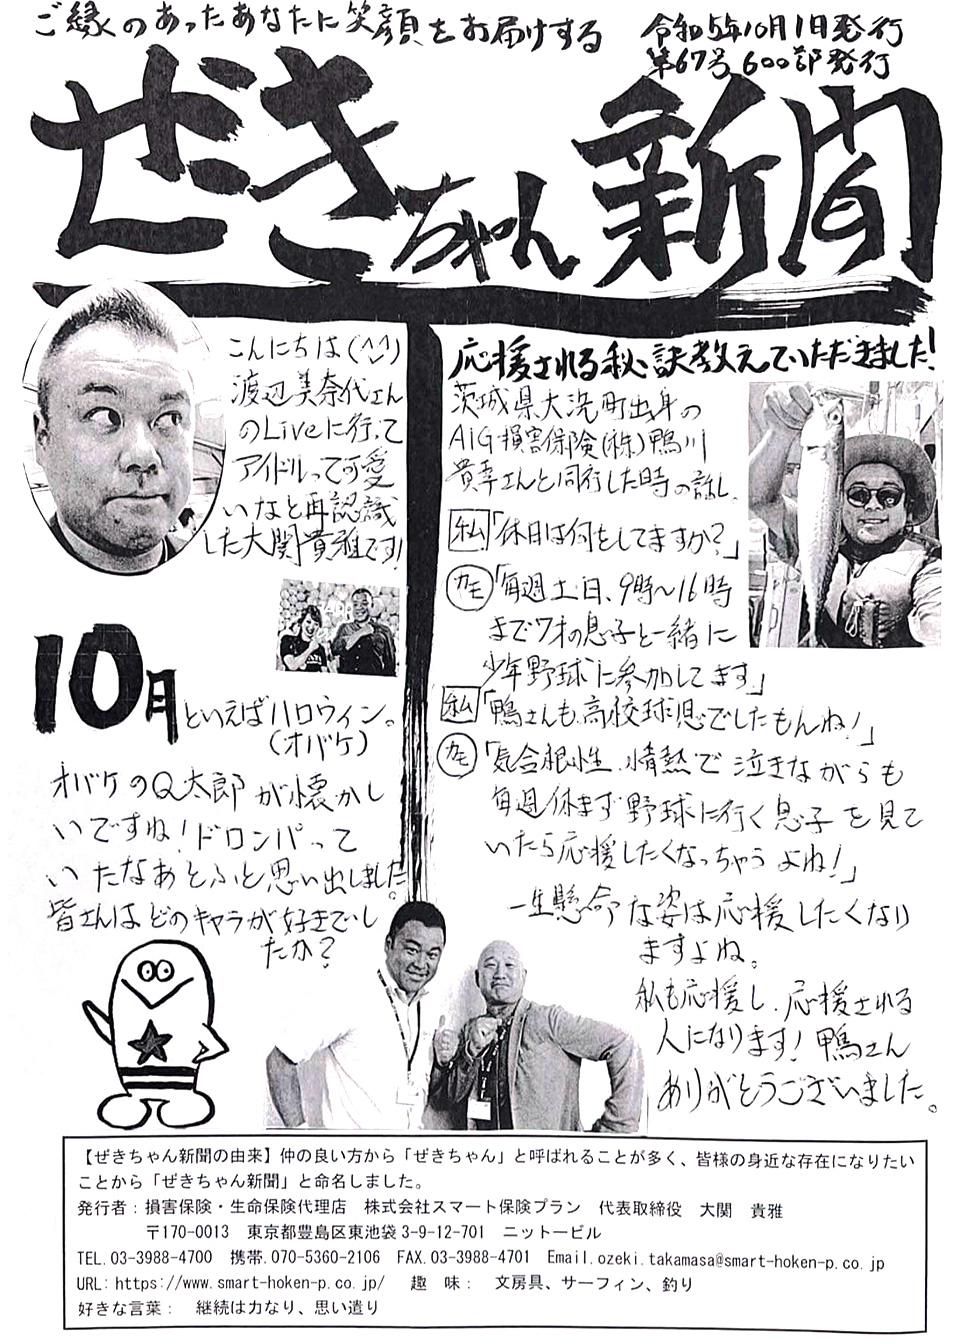 ご縁のあったあなたに笑顔をお届けする
令和5年10月1日発行
第67号 600部発行
ぜきちゃん新聞
こんにちは(^^)
渡辺美奈代さん
のLiveに行って
アイドルって可愛
いなと再認識
した大関貴雅です!
10月といえばハロウィン。
(オバケ)
オバケのQ太郎が懐かし
いですね!ドロンパって
いたなあとふと思い出しました。
皆さんはどのキャラが好きでし
たか?
応援される秘訣教えていただきました!
茨城県大洗町出身の
AIG損害保険(株)鴨川
貴幸さんと同行した時の話し。
私「休日は何をしてますか?」
カモ「毎週土日、9時〜16時
まで7才の息子と一緒に
少年野球に参加してます」
私「鴨さんも高校球児でしたもんね!」
カモ「気合根性、情熱で泣きながらも
毎週休まず野球に行く息子を見て
いたら応援したくなっちゃうよね!」
一生懸命な姿は応援したくなり
ますよね。
私も応援し、応援される
人になります!鴨さん
ありがとうございました。
【ぜきちゃん新聞の由来】仲の良い方から「ぜきちゃん」と呼ばれることが多く、皆様の身近な存在になりたい
ことから「ぜきちゃん新聞」と命名しました。
発行者：損害保険・生命保険代理店　株式会社スマート保険プラン　代表取締役　大関　貴雅
〒170-0013　東京都豊島区東池袋3-9-12-701　ニットービル
TEL.03-3988-4700　携帯.070-5360-2106　FAX.03-3988-4701　Email.ozeki.takamasa@smart-hoken-p.co.jp
URL:https://www.smart-hoken-p.co.jp/　趣　味：　文房具、サーフィン、釣り
好きな言葉：　継続は力なり、思い遣り